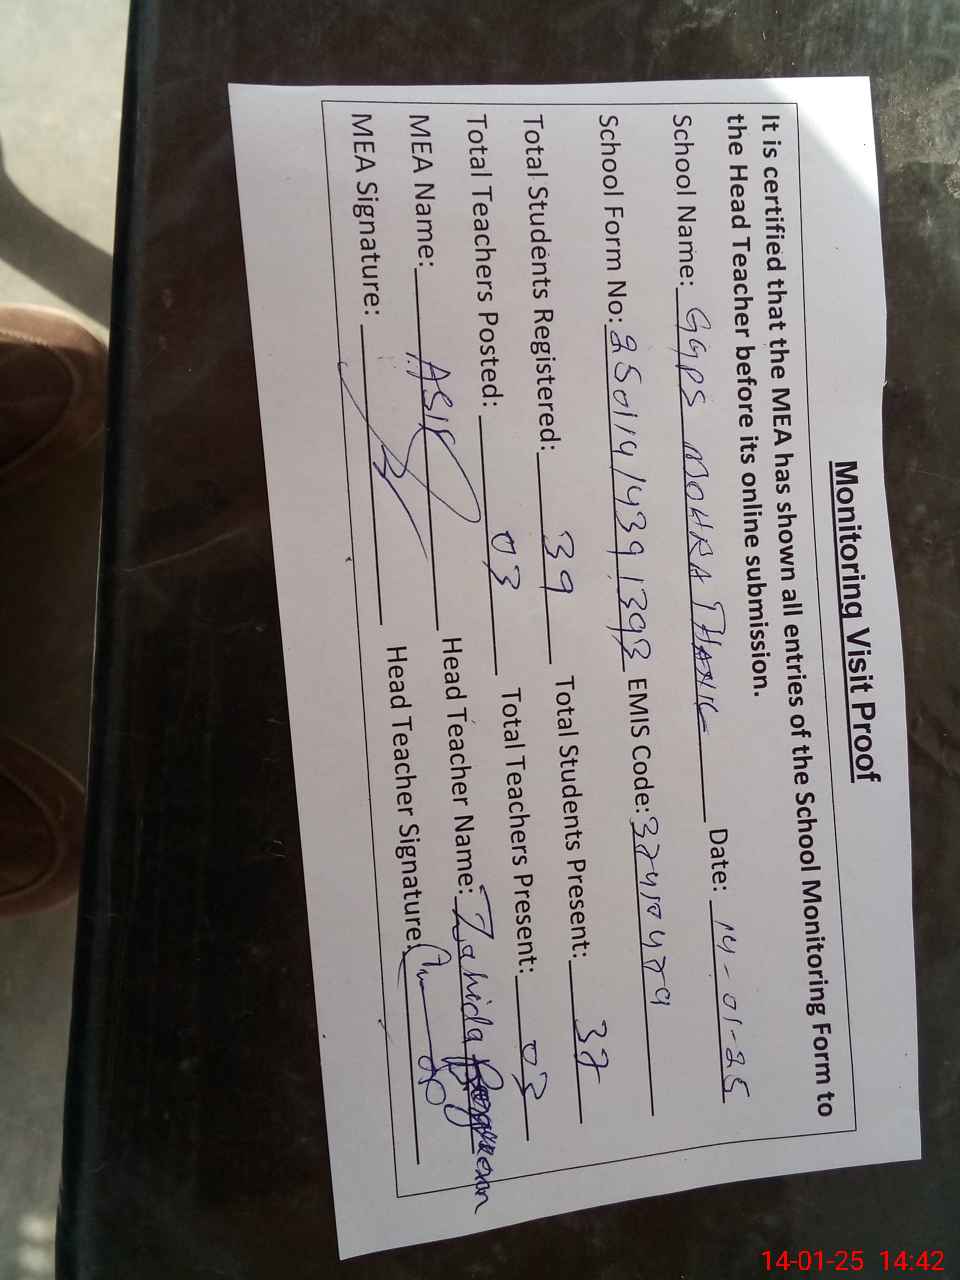 Monitoring Visit Proof
It is certified that the MEA has shown all entries of the School Monitoring Form to
the Head Teacher before its online submission.
School Name: GGPS MOHRA THANK Date: 14-01-25
School Form No: 25011414391393 EMIS Code:
Total Students Registered: 39 Total Students Present: 37
Total Teachers Posted: 03 Total Teachers Present: 03
MEA Name: ASIF Head Teacher Name: Zahida
MEA Signature: Head Teacher Signature:
14-01-25 14:42